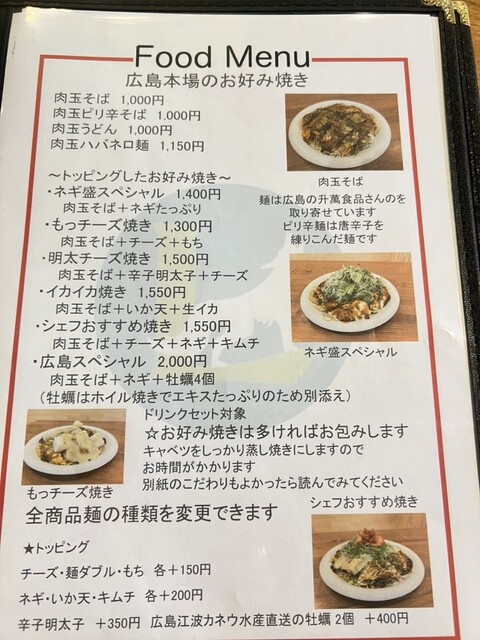 Food Menu
広島本場のお好み焼き
肉玉そば 1,000円
肉玉ピリ辛そば 1,000円
肉玉うどん 1,000円
肉玉ハバネロ麺 1,150円
肉玉そば
麺は広島の升萬食品さんのを
取り寄せています
ピリ辛麺は唐辛子を
練りこんだ麺です
～トッピングしたお好み焼き～
・ネギ盛スペシャル 1,400円
肉玉そば+ネギたっぷり
・もっチーズ焼き 1,300円
肉玉そば+チーズ+もち
・明太チーズ焼き 1,500円
肉玉そば+辛子明太子+チーズ
・イカイカ焼き 1,550円
肉玉そば+いか天+生イカ
・シェフおすすめ焼き 1,550円
肉玉そば+チーズ+ネギ+キムチ
・広島スペシャル 2,000円
肉玉そば+ネギ+牡蠣4個
(牡蠣はホイル焼きでエキスたっぷりのため別添え)
ネギ盛スペシャル
ドリンクセット対象
☆お好み焼きは多ければお包みします
キャベツをしっかり蒸し焼きにしますので
お時間がかかります
別紙のこだわりもよかったら読んでみてください
もっチーズ焼き
シェフおすすめ焼き
全商品麺の種類を変更できます
★トッピング
チーズ・麺ダブル・もち 各+150円
ネギ・いか天・キムチ 各+200円
辛子明太子 +350円 広島江波カネウ水産直送の牡蠣 2個 +400円